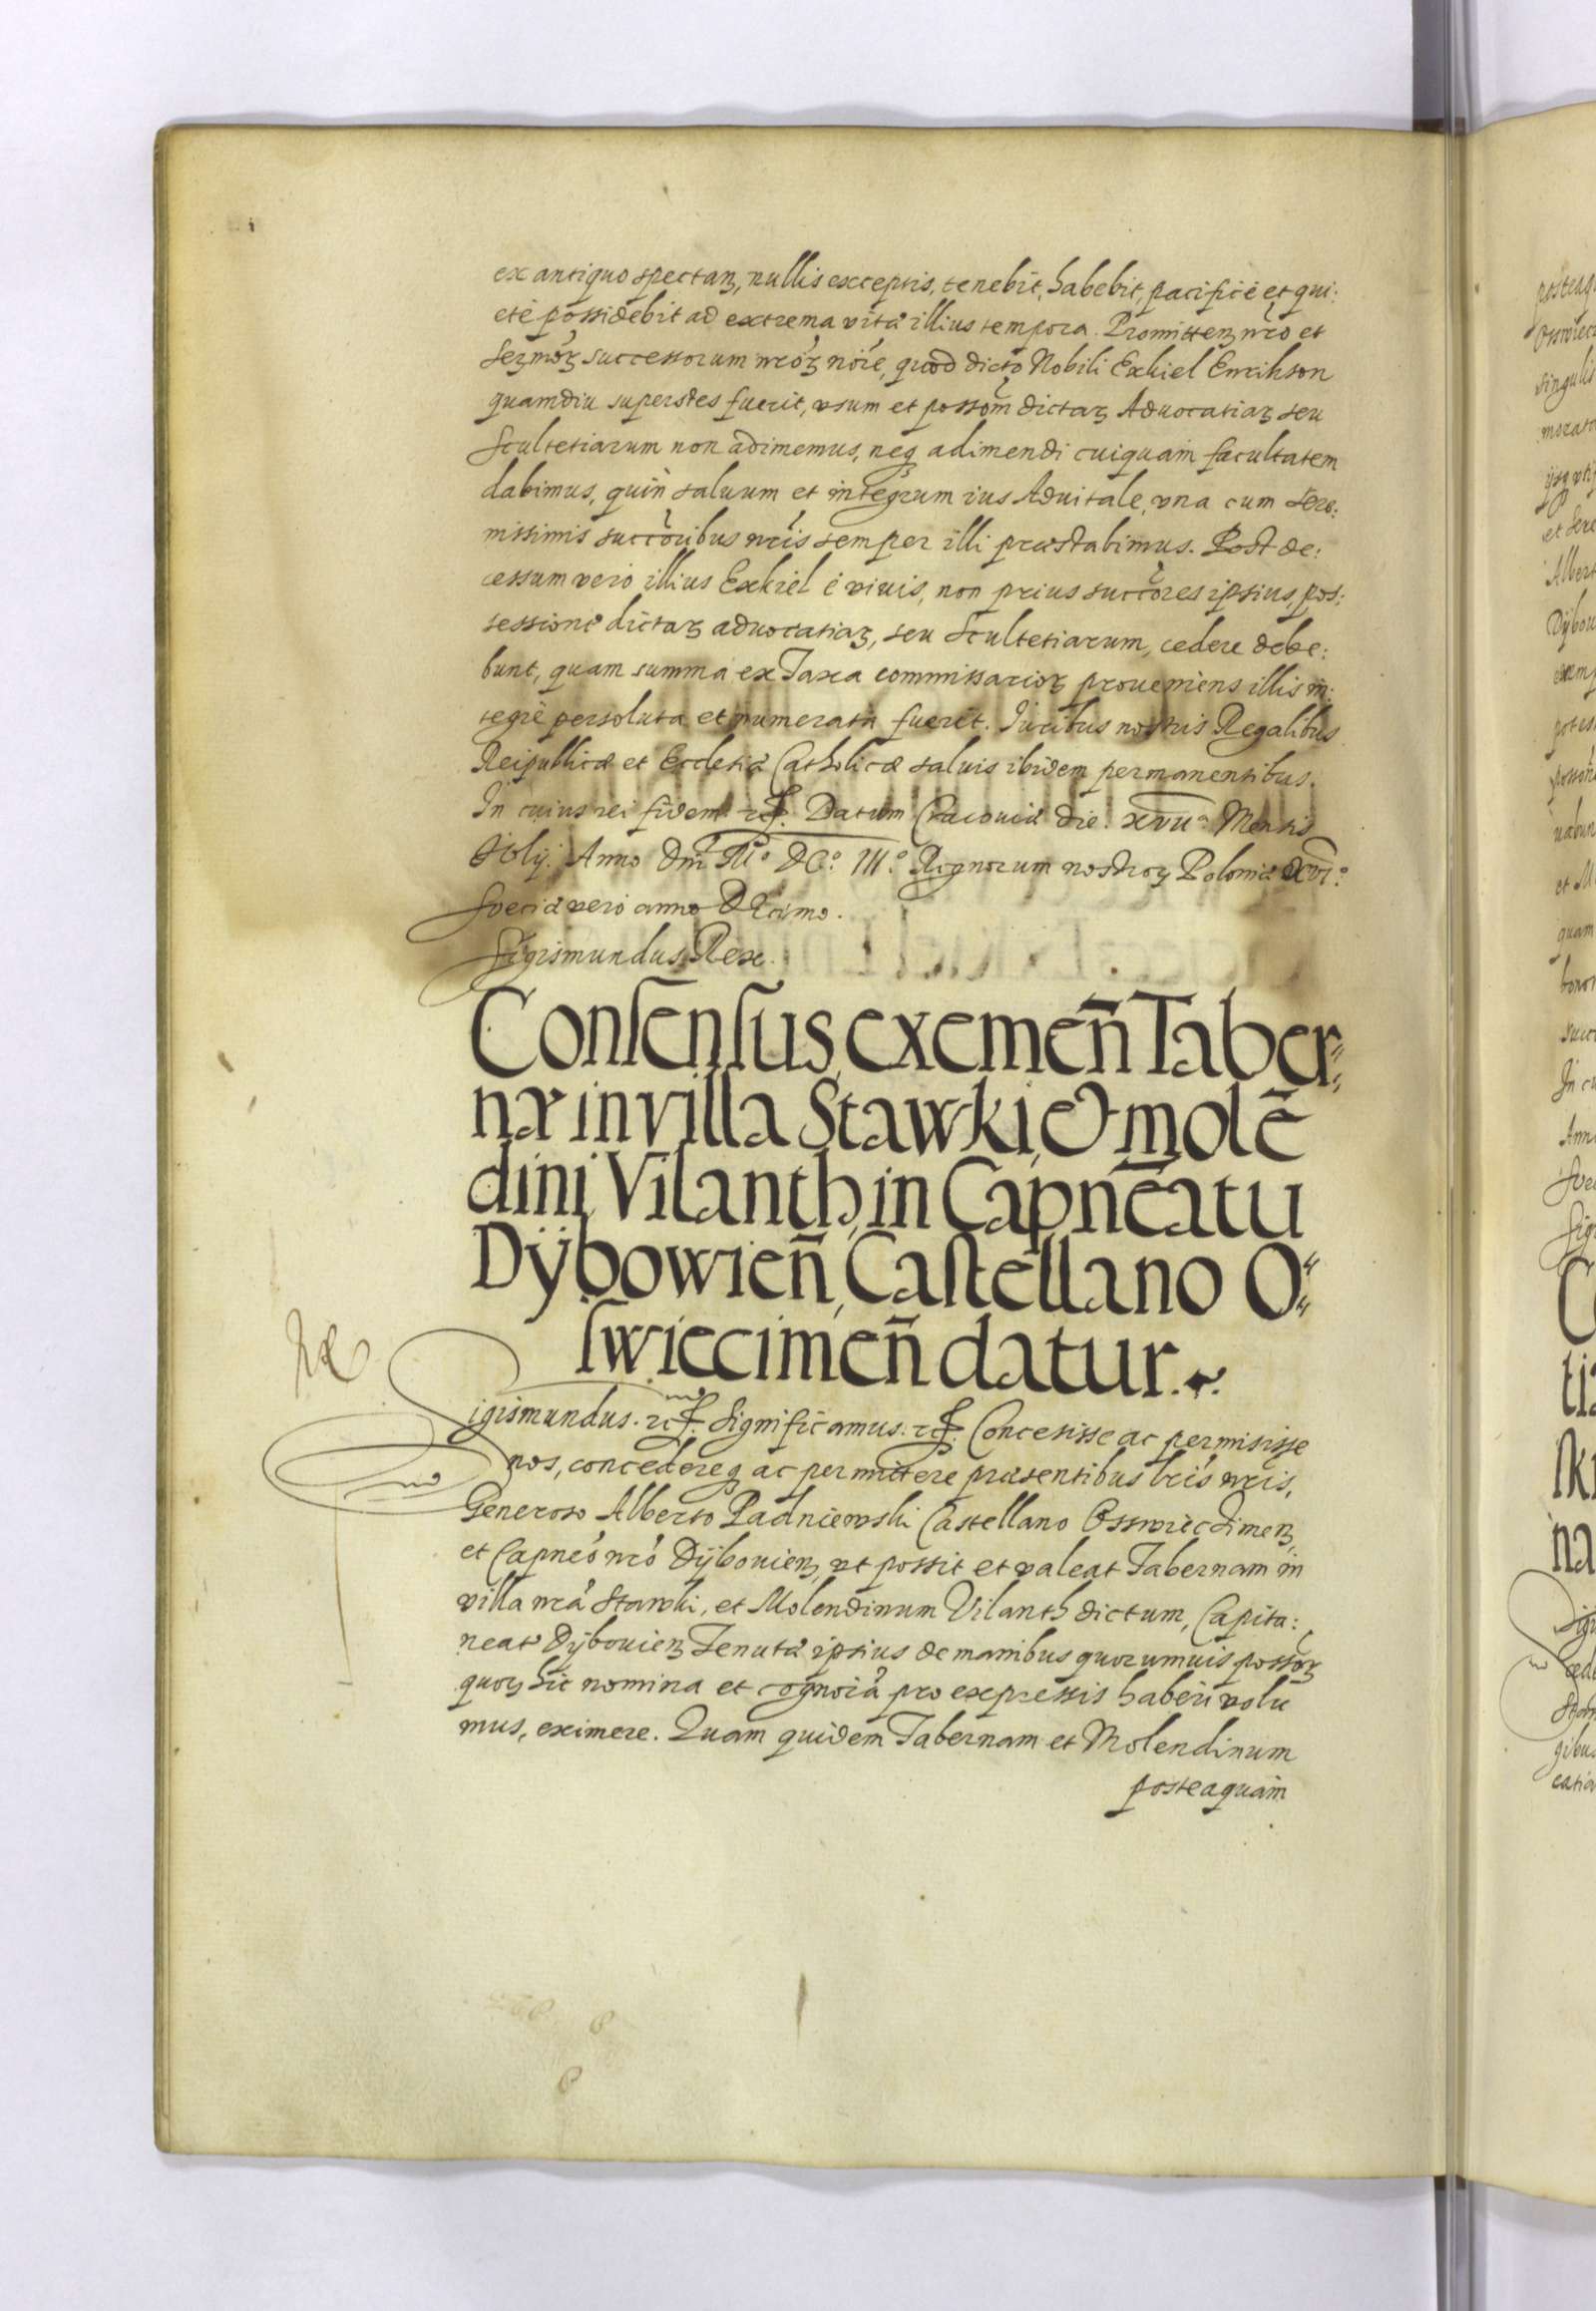 ex antiquo spectanᵗ, nullis exceptis, tenebit, habebit, pacificè et qui:
etè possidebit ad extrema vitæ illius tempora. Promittenᵗ nr̃o et
Serm̃orꝫ successorum nr̃orꝫ nõie, quod dicto Nobili Exkiel Enrikson
quamdiu superstes fuerit, vsum et possõm dictarꝫ Aduocatiarꝫ seu
Scultetiarum non adimemus, neqꝫ adimendi cuiquam facultatem
dabimus, quin saluum et integrum ius Aduitale, vna cum Sere:
nissimis succõribus nr̃is semper illi præstabimus. Post de:
cessum vero illius Exkiel è viuis, non prius succõres ipsius, pos:
sessione dictarꝫ aduocatiarꝫ, seu Scultetiarum, cedere debe:
bunt, quam summa ex Taxa commissariorꝫ proueniens illis in:
tegrè persoluta et numerata fuerit. Iuribus nostris Regalibus
Reipublicæ et Ecclesiæ Catholicæ saluis ibidem permanentibus.
In cuius rei fidem etc. Datum Cracouiæ die. xvii.ª Mensis
Iulij. Anno Dn̄i M.º DC.º III.º Regnorum nostrorꝫ Poloniæ xvi.º
Sveciæ vero anno Decimo.
Sigismundus Rex.
Consensus, exemen̄ Taber⸗
næ in villa Stawki, & molē
dini, Vilanth, in Capnēatu
Dÿbowien̄, Castellano O⸗
swiecimen̄ datur.
Sigismundus. etc. Significamus. etc. Concesisse ac permisisse
nos, concedereqꝫ ac permittere præsentibus lr̃is nr̃is,
Generoso Alberto Padniewski Castellano Osswiecimenᵗ,
et Capneõ nr̃o Dÿbouienᵗ, vt possit et valeat Tabernam in
villa nr̃a Stawki, et Molendinum Vilanth dictum, Capita:
neat⁹ Dÿbouienᵗ Tenutæ ipsius de manibus quorumuis possõrꝫ
quorꝫ hic nomina et cognoĩa pro expressis haberi volu
mus, eximere. Quam quidem Tabernam et Molendinum
posteaquam